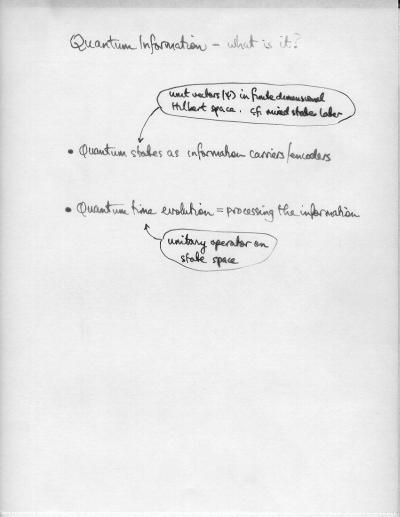 Quantum Information – what is it?
unit vectors |ψ⟩ in finite dimensional
Hilbert space. cf. mixed states later
• Quantum states as information carriers/encoders
• Quantum time evolution = processing the information
unitary operator on
state space